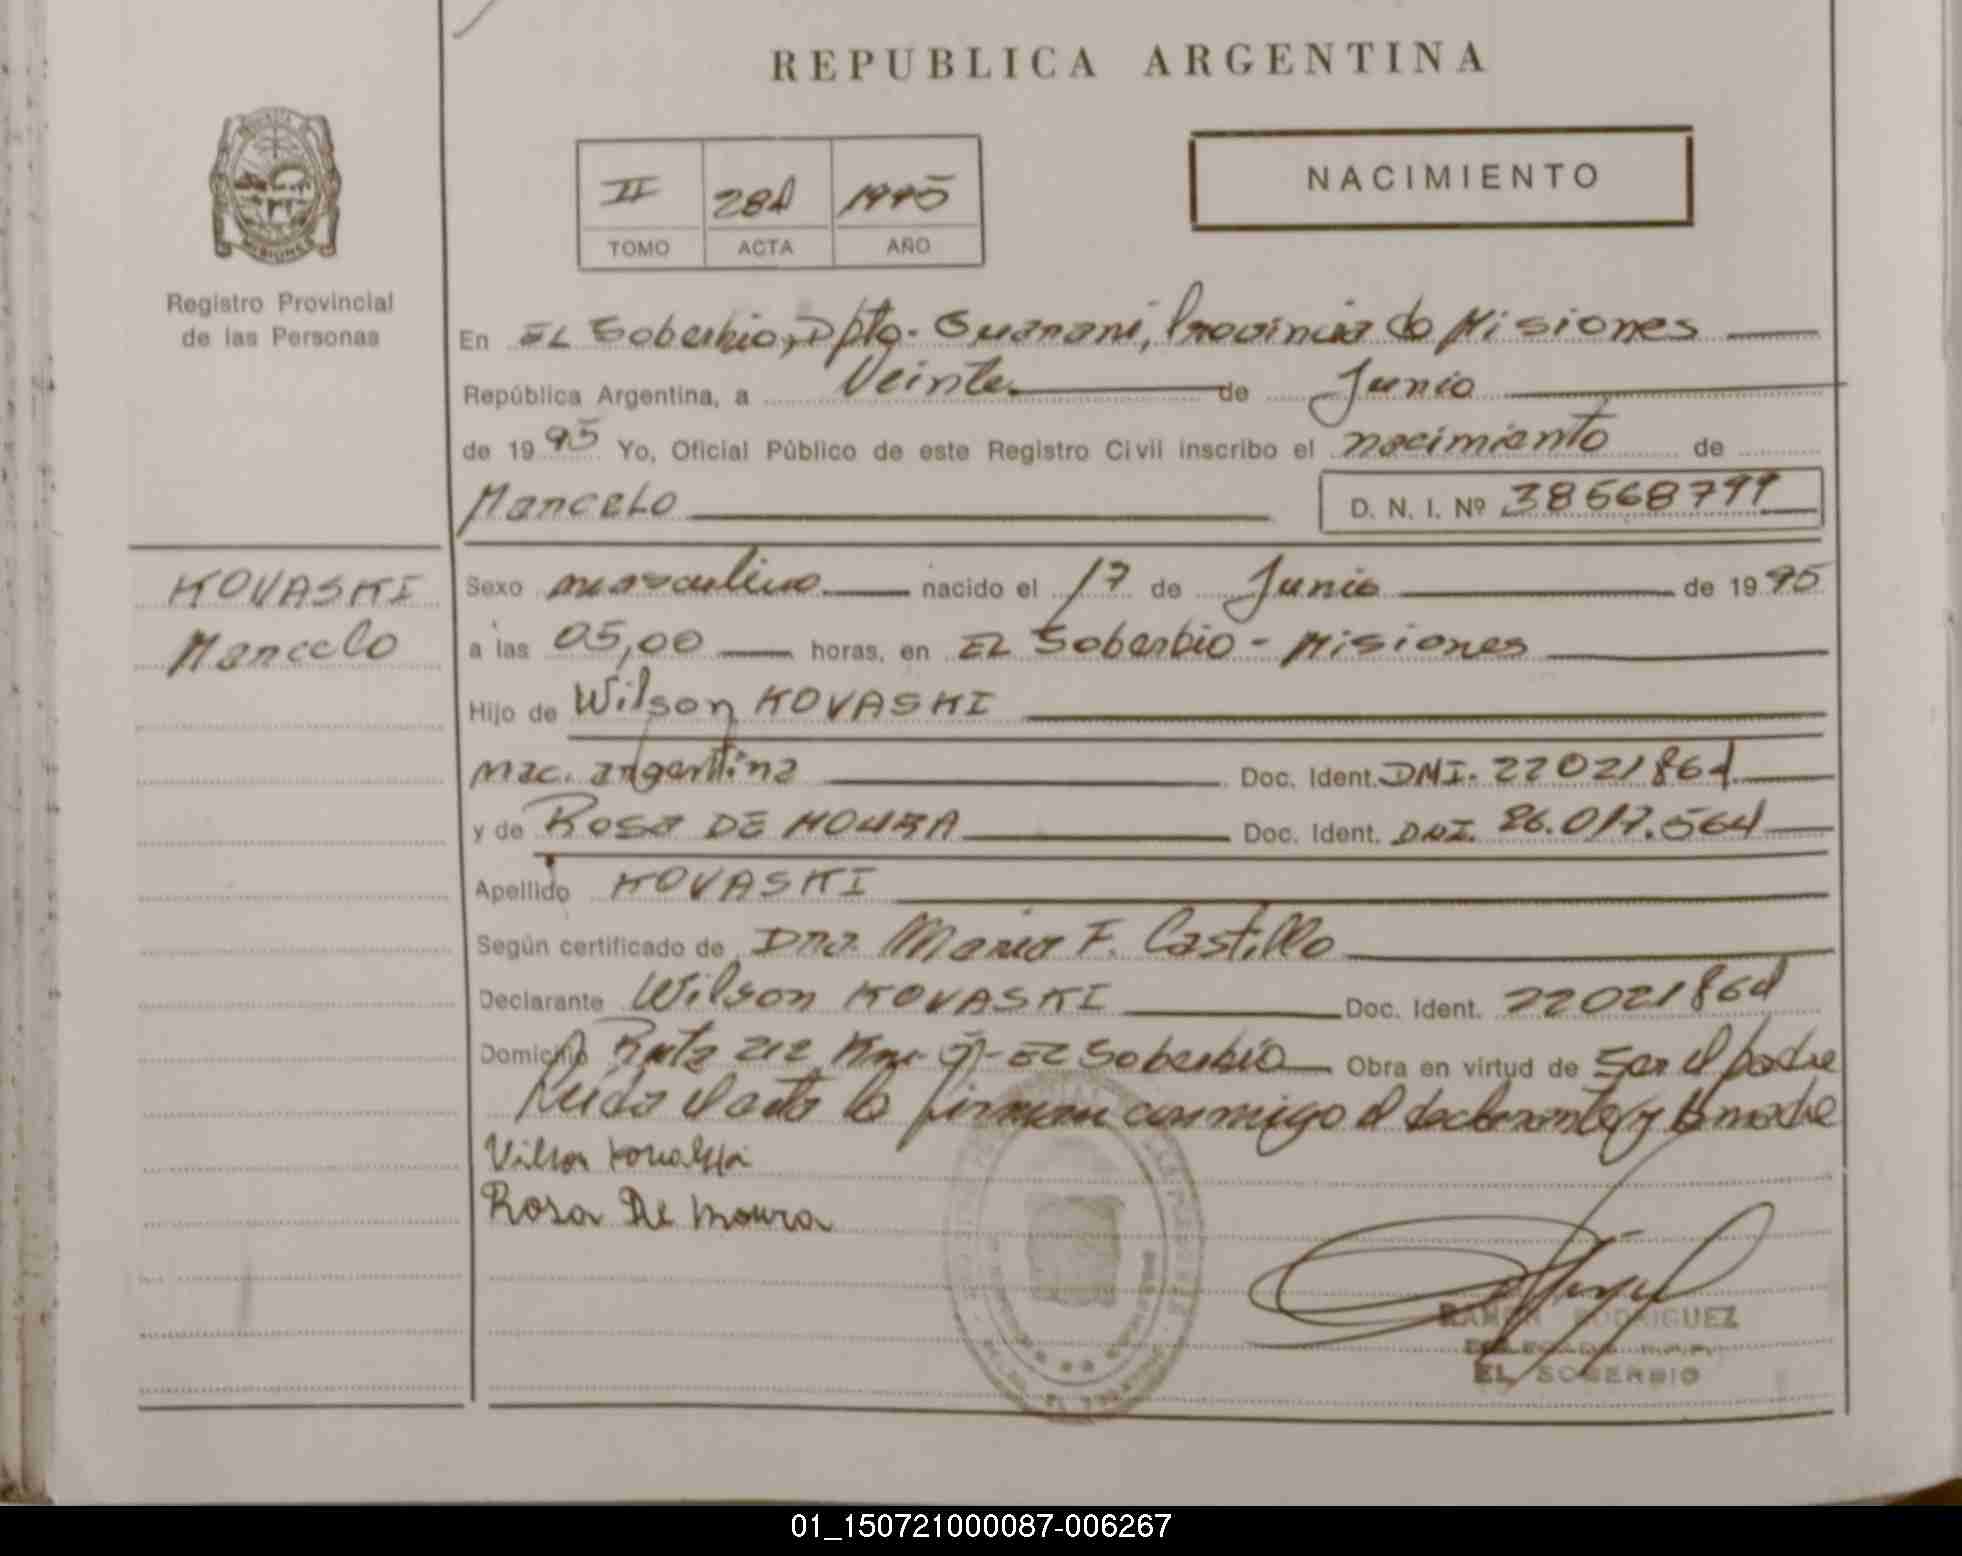 REPUBLICA ARGENTINA
NACIMIENTO
II 281 1995
TOMO ACTA AÑO
MISIONES
Registro Provincial
de las Personas
En EL Soberbio, Dpto. Guarani, Provincia de Misiones
República Argentina, a Veinte de Junio
de 1995 Yo, Oficial Público de este Registro Civil inscribo el nacimiento de
Marcelo D. N. I. Nº 38568799
KOVASKI
Marcelo
Sexo masculino nacido el 17 de Junio de 1995
a las 05,00 horas, en EL Soberbio - Misiones
Hijo de Wilson KOVASKI
nac. argentina Doc. Ident. DNI. 22021861
y de Rosa DE MOURA Doc. Ident. DNI. 26.017.561
Apellido KOVASKI
Según certificado de Dra. Maria F. Castillo
Declarante Wilson KOVASKI Doc. Ident. 22021861
Domicilio Ruta 212 Km. EL Soberbio Obra en virtud de Ser el padre
Leida el acta la firman conmigo el declarante y la madre
Vilson
Rosa De Moura
RAMON RODRIGUEZ
DELEGADO R.P.P.
EL SOBERBIO
01_150721000087-006267